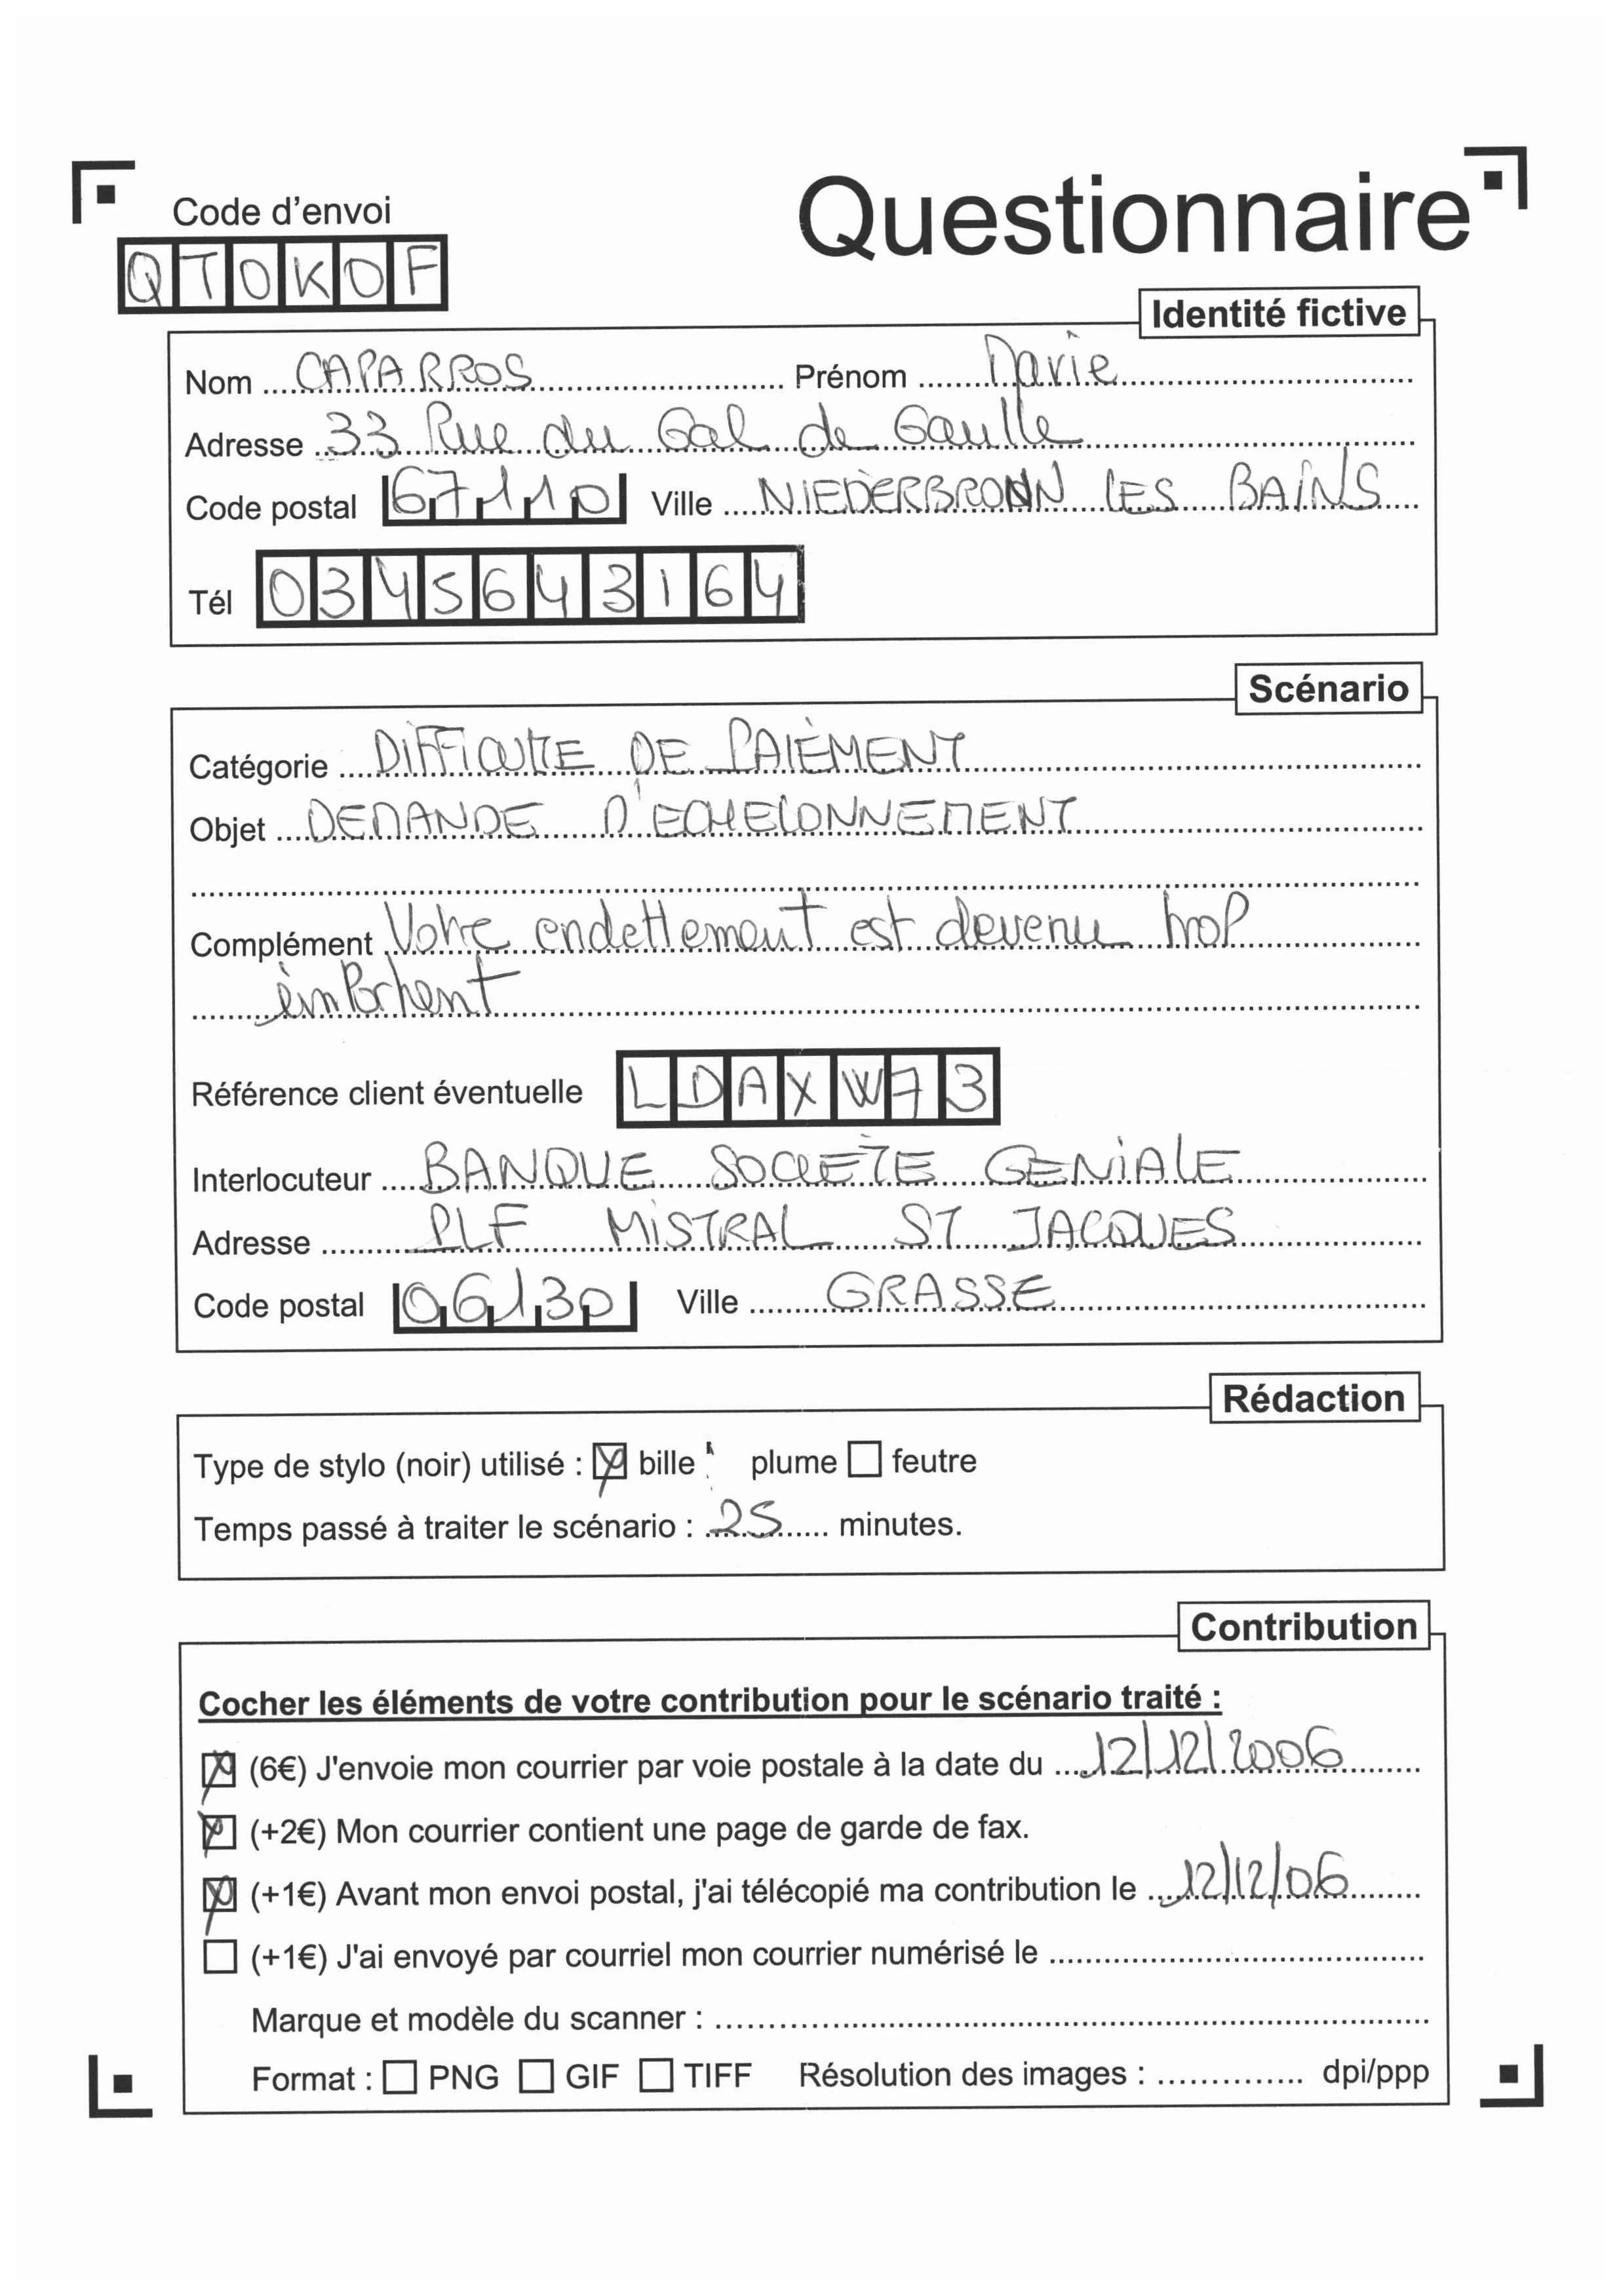 Code d'envoi
Questionnaire
QTOKOF
Identité fictive
Nom CAPARROS Prénom Marie
Adresse 33 Rue du Gal de Gaulle
Code postal 67110 Ville NIEDERBRONN LES BAINS
Tél 0345643164
Scénario
Catégorie DIFFICULTE DE PAIEMENT
Objet DEMANDE D'ECHELONNEMENT
Complément Votre endettement est devenu trop
importent
Référence client éventuelle LDAXW73
Interlocuteur BANQUE SOCIETE GENIALE
Adresse PLF MISTRAL ST JACQUES
Code postal 06130 Ville GRASSE
Rédaction
Type de stylo (noir) utilisé : bille plume feutre
Temps passé à traiter le scénario : 25 minutes.
Contribution
Cocher les éléments de votre contribution pour le scénario traité :
(6€) J'envoie mon courrier par voie postale à la date du 12/12/2006
(+2€) Mon courrier contient une page de garde de fax.
(+1€) Avant mon envoi postal, j'ai télécopié ma contribution le 12/12/06
(+1€) J'ai envoyé par courriel mon courrier numérisé le
Marque et modèle du scanner :
Format : PNG GIF TIFF Résolution des images : dpi/ppp